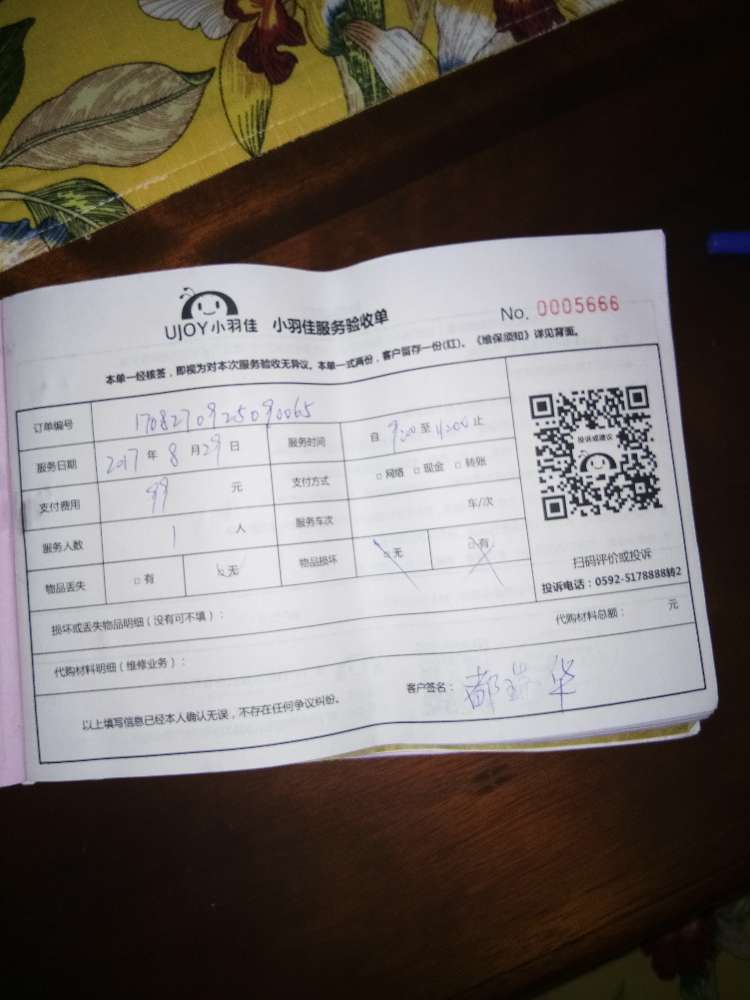 UJOY小羽佳 小羽佳服务验收单 No. 0005666
本单一经核签，即视为对本次服务验收无异议。本单一式两份，客户留存一份(红)。《维保须知》详见背面。
订单编号 1708270925090065
服务日期 2017年8月29日 服务时间 自 9:00 至 止
支付费用 99 元 支付方式 □网络 □现金 □转账
服务人数 1 人 服务车次 车/次
物品丢失 □有 □无 物品损坏 □无 □有
损坏或丢失物品明细（没有可不填）：
代购材料明细（维修业务）： 代购材料总额： 元
以上填写信息已经本人确认无误，不存在任何争议纠纷。 客户签名：都瑞华
投诉或建议
扫码评价或投诉
投诉电话：0592-5178888转2